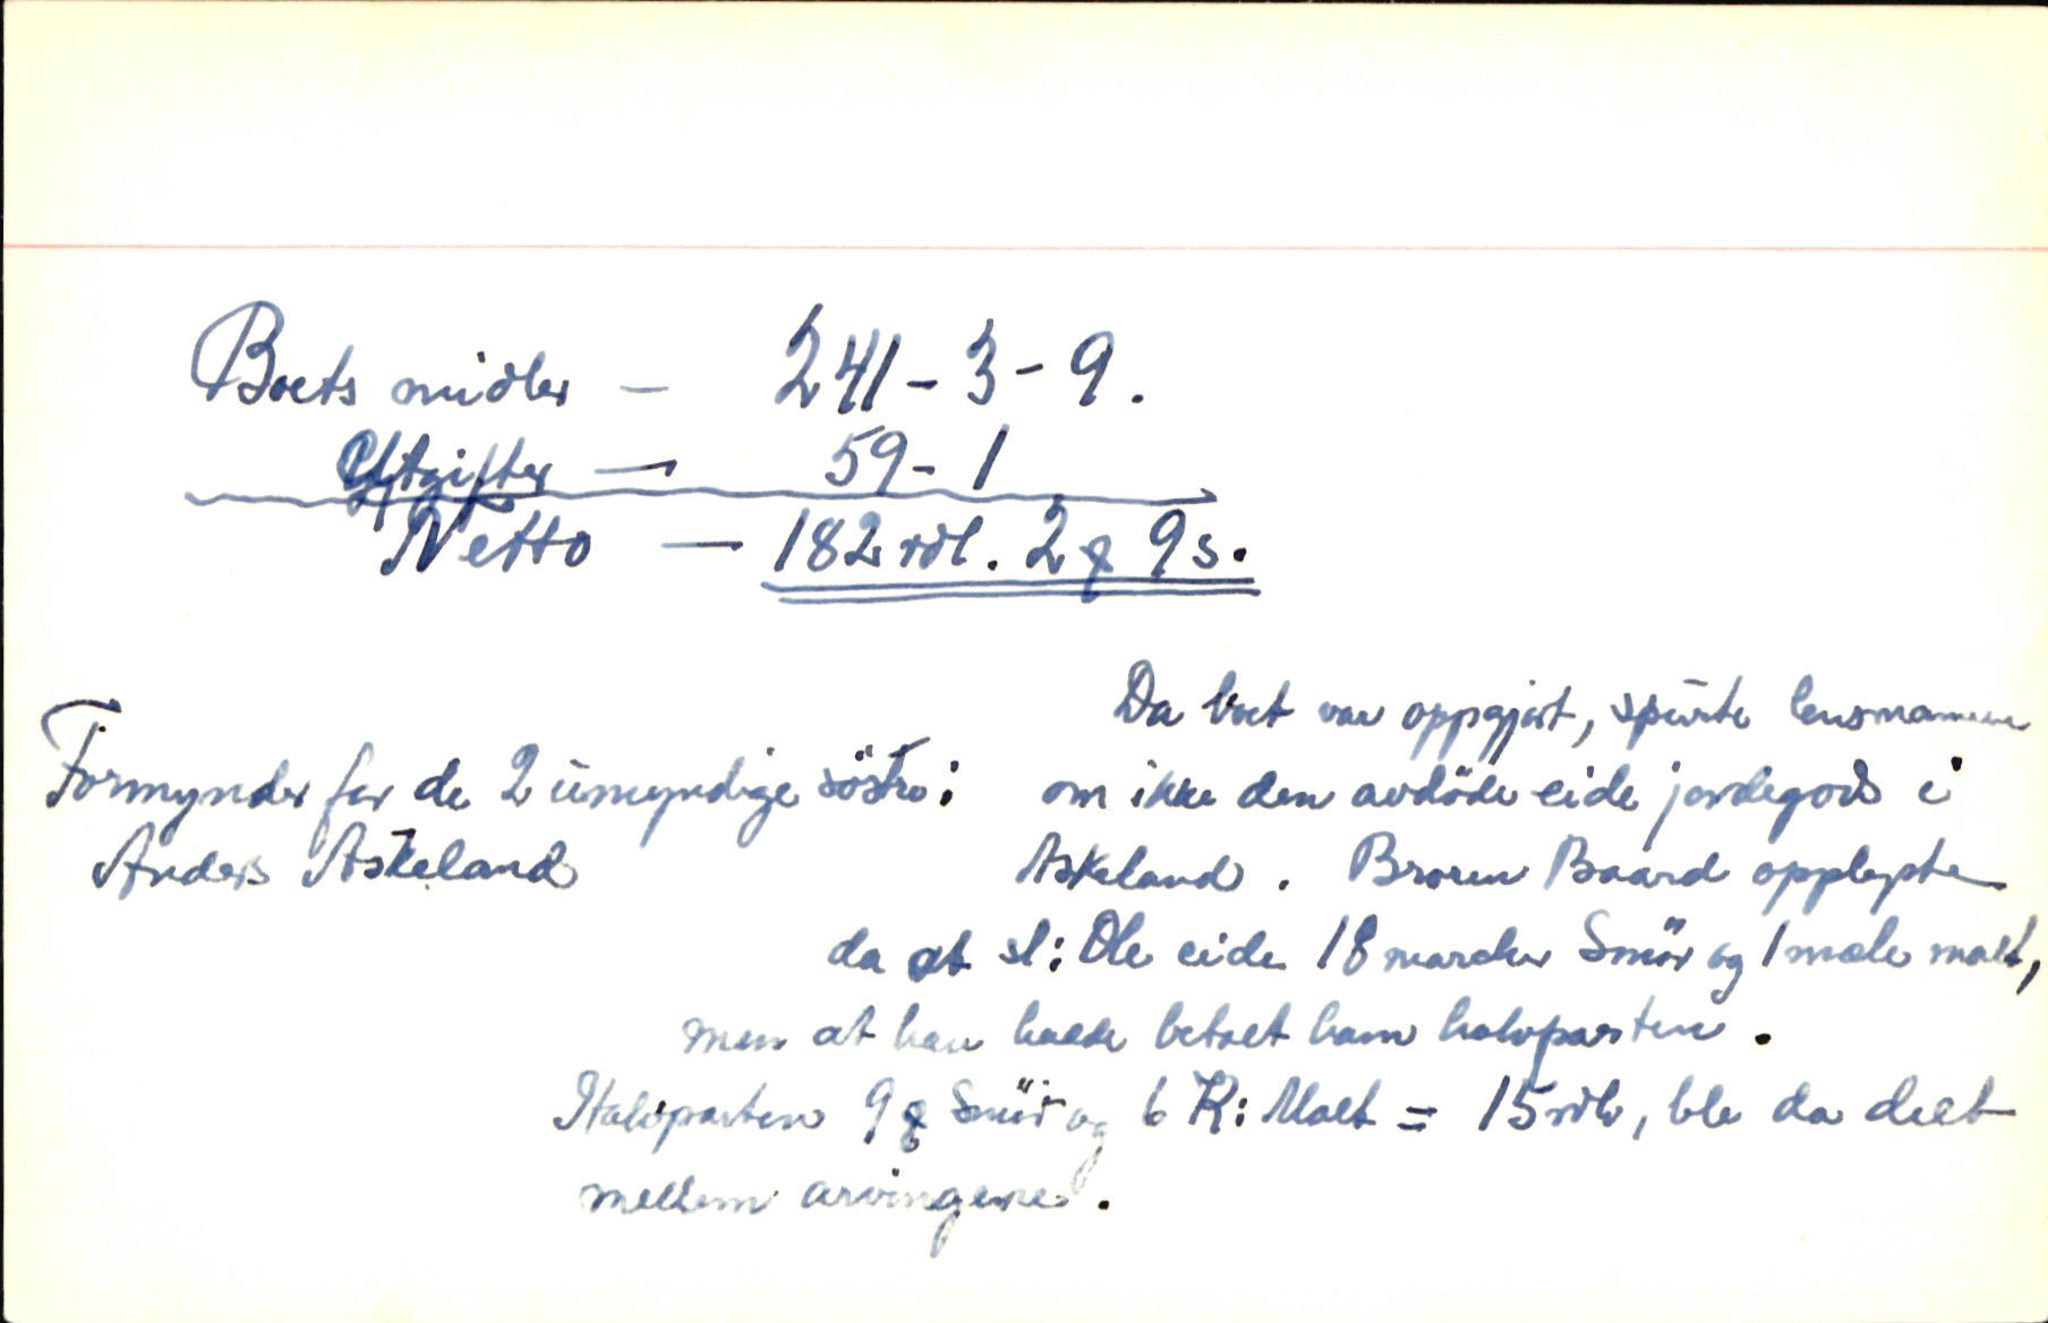 Boets midler - 241 - 3 - 9.
Utgifter — 59 - 1
Netto — 182 rdl. 2 ꝗ 9 s.
Formynder for de 2 umyndige söstre:
Anders Askeland
Da boet var oppgjort, spurte lensmannen
om ikke den avdöde eide jordegods i
Askeland. Broren Baard opplyste
da at sl: Ole eide 18 marcker Smör og 1 mæle malt,
men at han hadde betalt ham halvparten.
Halvparten 9 ꝗ Smör og 6 K: Malt = 15 rdl, ble da delt
mellem arvingene.